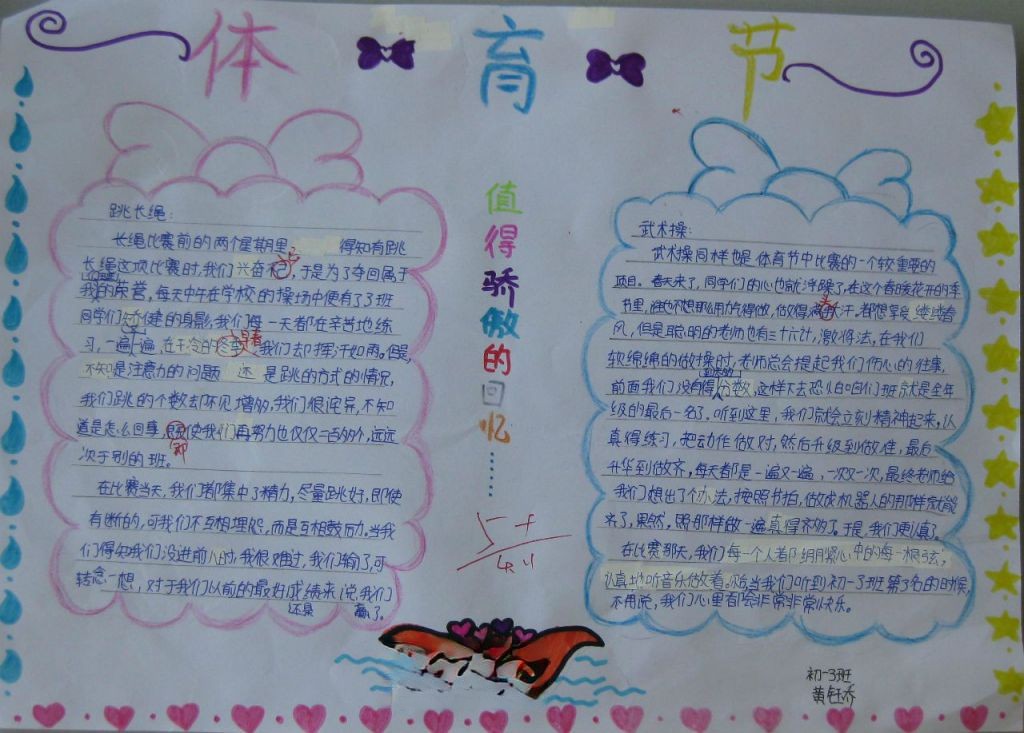 体育节
值得骄傲的回忆……
跳长绳:
长绳比赛前的两个星期里 得知有跳
长绳这项比赛时,我们兴奋 ,于是为了夺回属于
我的荣誉,每天中午在学校的操场中便有了3班
同学们 健的身影,我们每一天都在辛苦地练
习,一遍 遍,在 冷的冬 ,我们去却挥汗如雨。但是,
不知是注意力的问题 还是跳的方式的情况,
我们跳的个数却不见增多,我们很诧异,不知
道是怎么回事,即使我们再努力也仅仅一百多个,远远
次于别的班。
在比赛当天,我们都集中了精力,尽量跳好,即使
有断的,可我们不互相埋怨,而是互相鼓励,当我
们得知我们没进前八时,我很难过,我们输了,可
转念一想,对于我们以前的最好成绩来说,我们
还是 赢了。
武术操:
武术操同样也是体育节中比赛的一个较重要的
项目。春天来了,同学们的心也就浮躁了,在这个春暖花开的季
节里,谁也不想那么用力得做,做得满 大汗,都想享受 春
风,但是聪明的老师也有三十六计,激将法,在我们
软绵绵的做操时,老师总会提起我们伤心的往事,
前面我们没有得 分数,这样下去恐怕咱们班就是全年
级的最后一名了,听到这里,我们就会立刻精神起来,认
真得练习,把动作做对,然后升级到做准,最后
升华到做齐,每天都是一遍又一遍,一次又一次,最终老师给
我们想出了个办法,按照书拍,做成机器人的那样就能
齐了,果然,照那样做一遍真得齐多了。于是,我们更认真了。
在比赛那天,我们每一个人都绷紧心中的每一根弦,
认真地听音乐做着。 当我们听到初一3班第3名的时候,
不用说,我们心里都会非常非常快乐。
5+
初一3班
黄钰乔